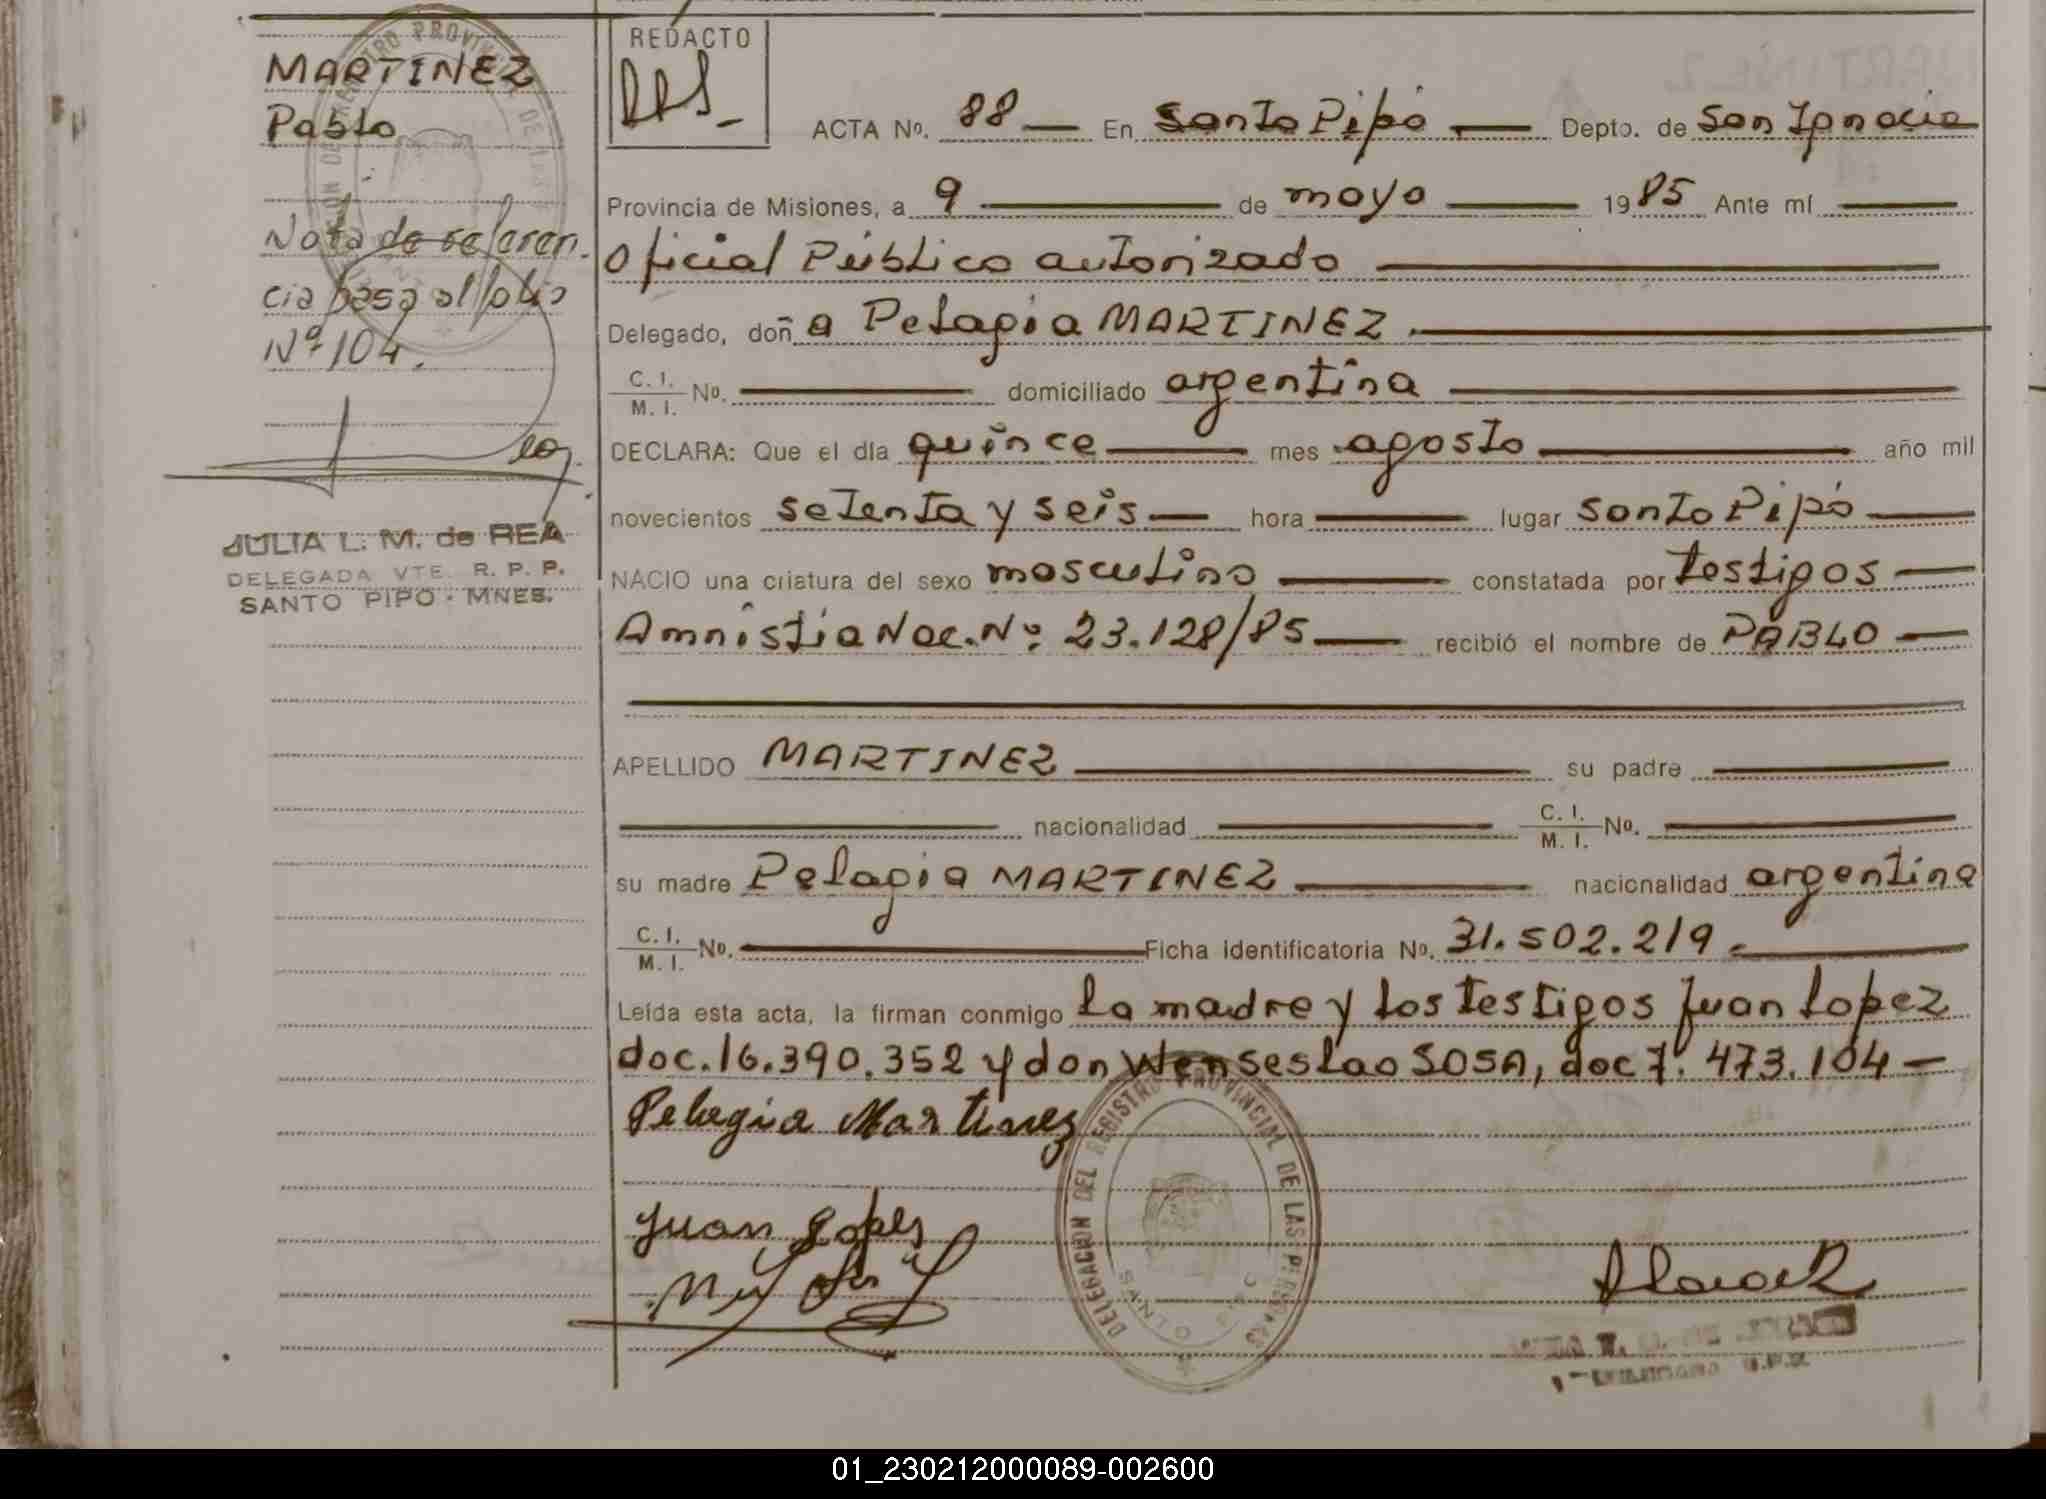 MARTINEZ
Pablo
Nota de referen.
cia pasa al folio
Nº 104.
JULIA L. M. de REA
DELEGADA VTE. R. P. P.
SANTO PIPO - MNES.
REDACTO
ACTA Nº. 88 — En Santo Pipó — Depto. de San Ignacio
Provincia de Misiones, a 9 — de mayo — 1985 Ante mí —
Oficial Público autorizado —
Delegado, doñ a Pelagia MARTINEZ. —
C. I. / M. I. Nº. — domiciliado argentina —
DECLARA: Que el día quince — mes agosto — año mil
novecientos setenta y seis — hora — lugar Santo Pipó —
NACIO una criatura del sexo masculino — constatada por testigos —
Amnistia Nac. Nº 23.128/85 — recibió el nombre de PABLO —
APELLIDO MARTINEZ — su padre —
— nacionalidad — C. I. / M. I. Nº. —
su madre Pelagia MARTINEZ — nacionalidad argentina
C. I. / M. I. Nº. — Ficha identificatoria Nº. 31.502.219. —
Leída esta acta, la firman conmigo la madre y los testigos Juan Lopez
doc. 16.390.352 y don Wenseslao SOSA, doc 7.473.104 —
Pelagia Martinez
Juan Lopez
DELEGACION DEL REGISTRO PROVINCIAL DE LAS PERSONAS
SANTO PIPO
01_230212000089-002600